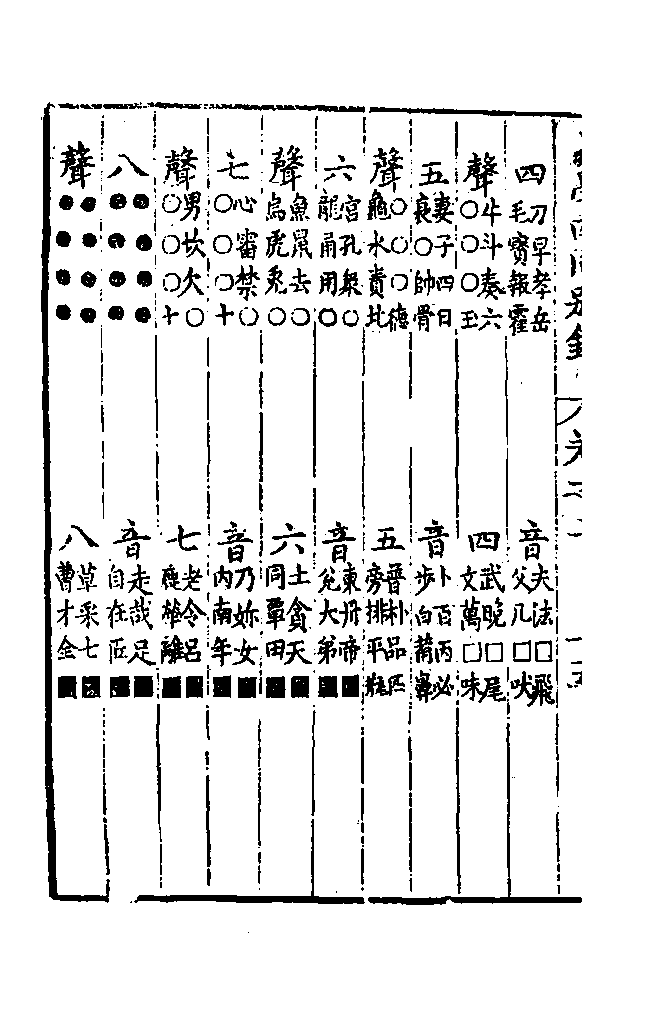 四
刀早孝岳
毛寶報霍
音
夫法□飛
父凡□吠
聲
牛斗奏六
○○○玉
四
武晚□尾
文萬□味
五
妻子四日
衰○帥骨
音
卜百丙必
步白葡鼻
聲
○○○德
龜水貴北
五
普朴品匹
旁排平瓶
六
宮孔衆○
龍甬用○
音
東丹帝■
兌大弟■
聲
魚鼠去○
烏虎兔○
六
土貪天■
同覃田■
七
心審禁○
○○○十
音
乃妳女■
內南年■
聲
男坎欠○
○○○十
七
老冷呂■
鹿犖離■
八
●●●●
●●●●
音
走哉足■
自在匠■
聲
●●●●
●●●●
八
草采七■
曹才全■